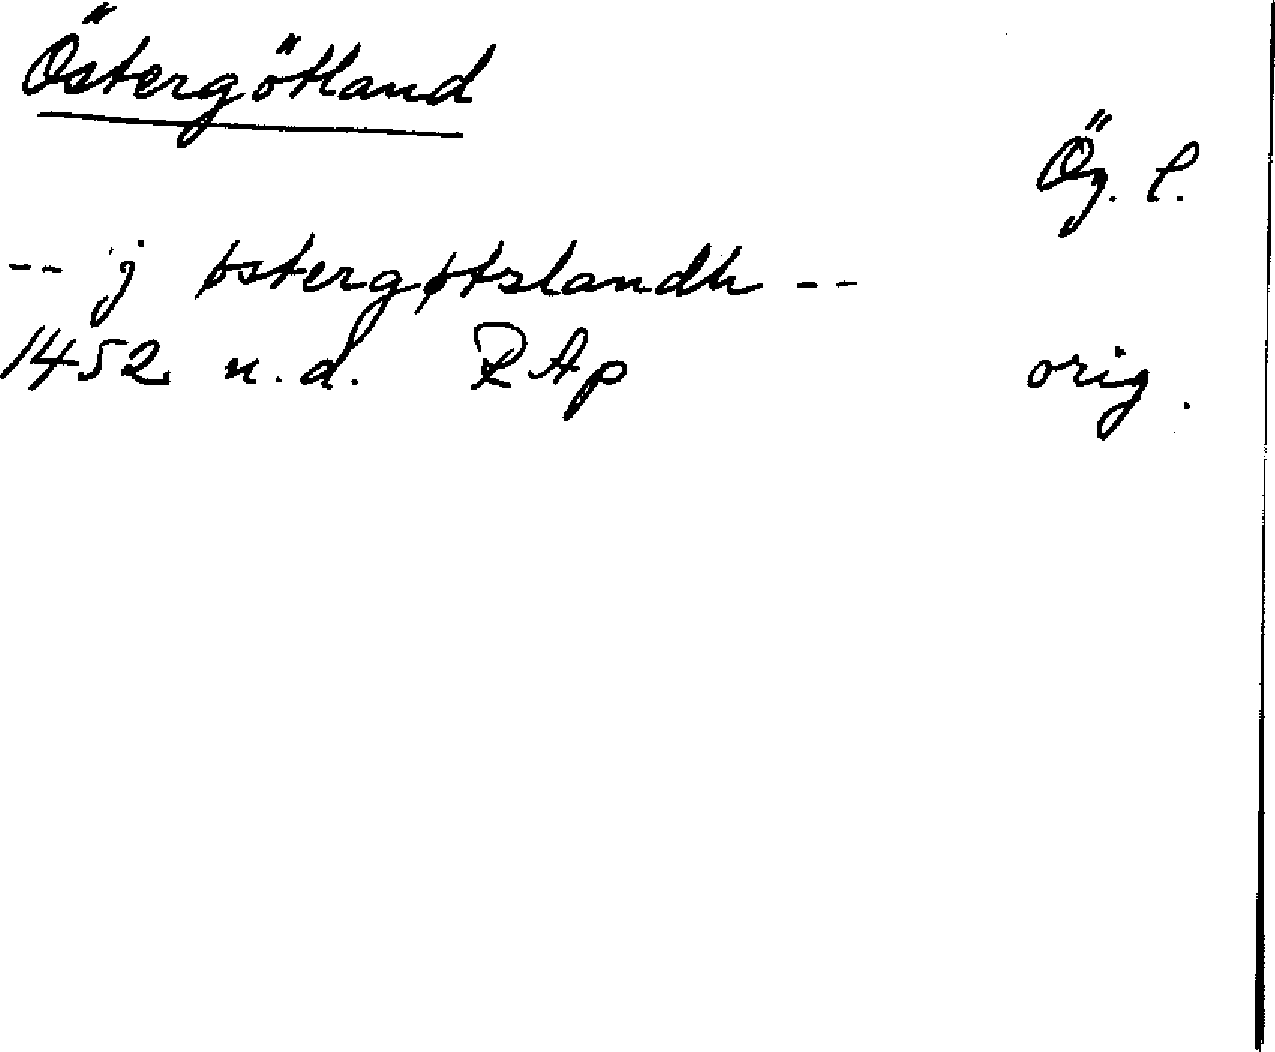 Östergötland
Ög. l.
-- j østergøtzlandh --
1452 u.d. RAp orig.